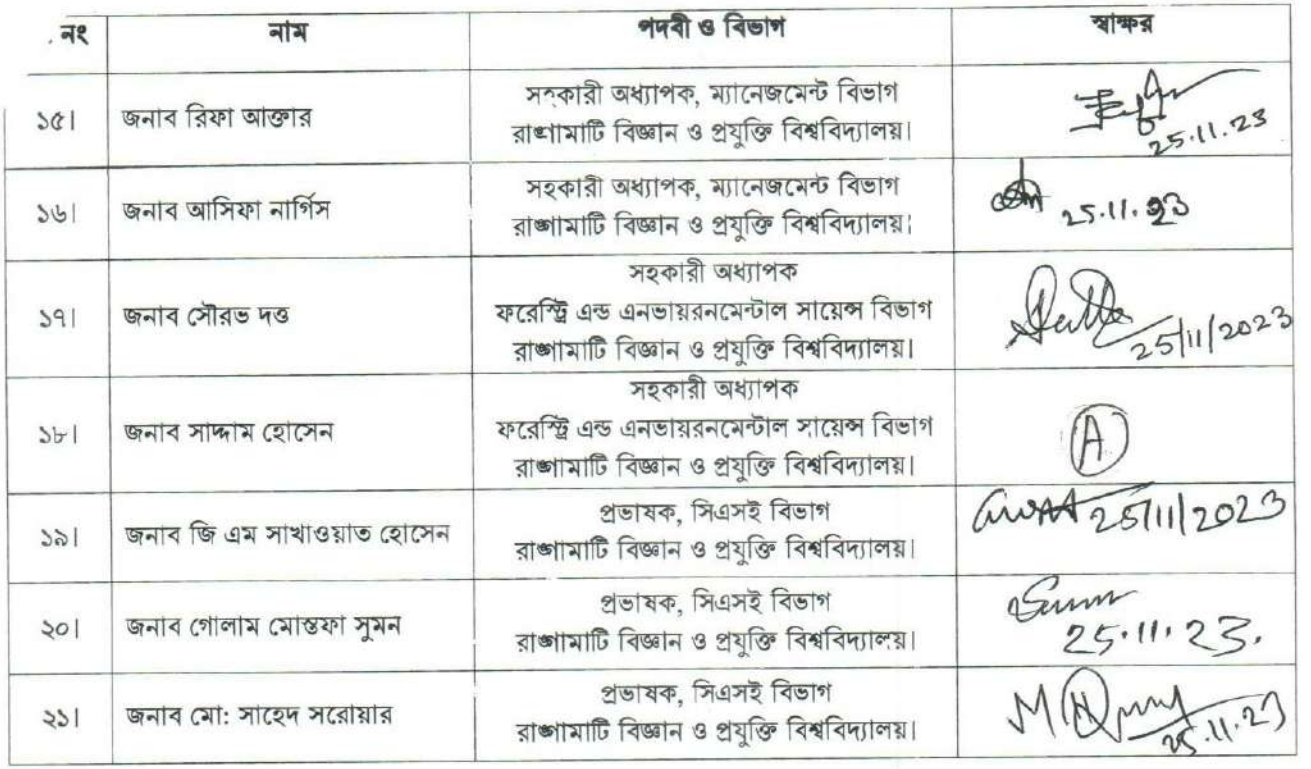 নং নাম পদবী ও বিভাগ স্বাক্ষর
১৫। জনাব রিফা আক্তার সহকারী অধ্যাপক, ম্যানেজমেন্ট বিভাগ
রাঙ্গামাটি বিজ্ঞান ও প্রযুক্তি বিশ্ববিদ্যালয়।
25.11.23
১৬। জনাব আসিফা নার্গিস সহকারী অধ্যাপক, ম্যানেজমেন্ট বিভাগ
রাঙ্গামাটি বিজ্ঞান ও প্রযুক্তি বিশ্ববিদ্যালয়।
25.11.23
১৭। জনাব সৌরভ দত্ত সহকারী অধ্যাপক
ফরেস্ট্রি এন্ড এনভায়রনমেন্টাল সায়েন্স বিভাগ
রাঙ্গামাটি বিজ্ঞান ও প্রযুক্তি বিশ্ববিদ্যালয়।
25/11/2023
১৮। জনাব সাদ্দাম হোসেন সহকারী অধ্যাপক
ফরেস্ট্রি এন্ড এনভায়রনমেন্টাল সায়েন্স বিভাগ
রাঙ্গামাটি বিজ্ঞান ও প্রযুক্তি বিশ্ববিদ্যালয়।
A
১৯। জনাব জি এম সাখাওয়াত হোসেন প্রভাষক, সিএসই বিভাগ
রাঙ্গামাটি বিজ্ঞান ও প্রযুক্তি বিশ্ববিদ্যালয়।
25/11/2023
২০। জনাব গোলাম মোস্তফা সুমন প্রভাষক, সিএসই বিভাগ
রাঙ্গামাটি বিজ্ঞান ও প্রযুক্তি বিশ্ববিদ্যালয়।
25.11.23.
২১। জনাব মো: সাহেদ সরোয়ার প্রভাষক, সিএসই বিভাগ
রাঙ্গামাটি বিজ্ঞান ও প্রযুক্তি বিশ্ববিদ্যালয়।
25.11.23